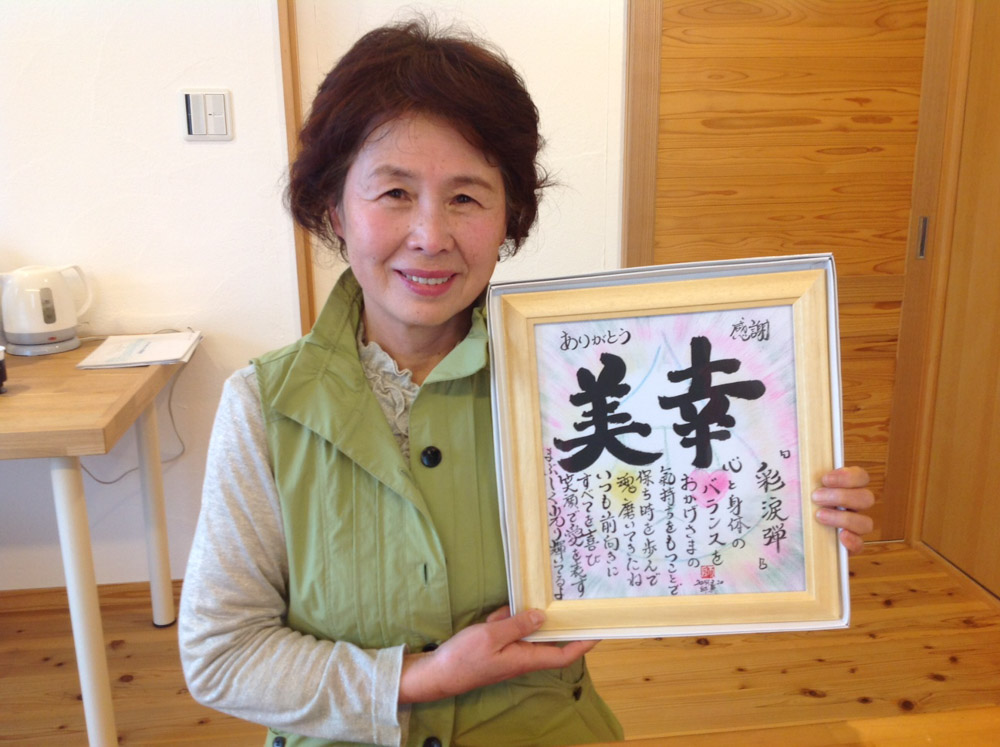 感謝
ありがとう
幸美
「彩涙弾」
心と身体の
バランスを
おかげさまの
氣持ちをもつことで
保ち時を歩んで
魂磨いてきたね
いつも前向きに
すべてを喜び
笑顔で愛を表す
まぶしく光り輝いてるよ